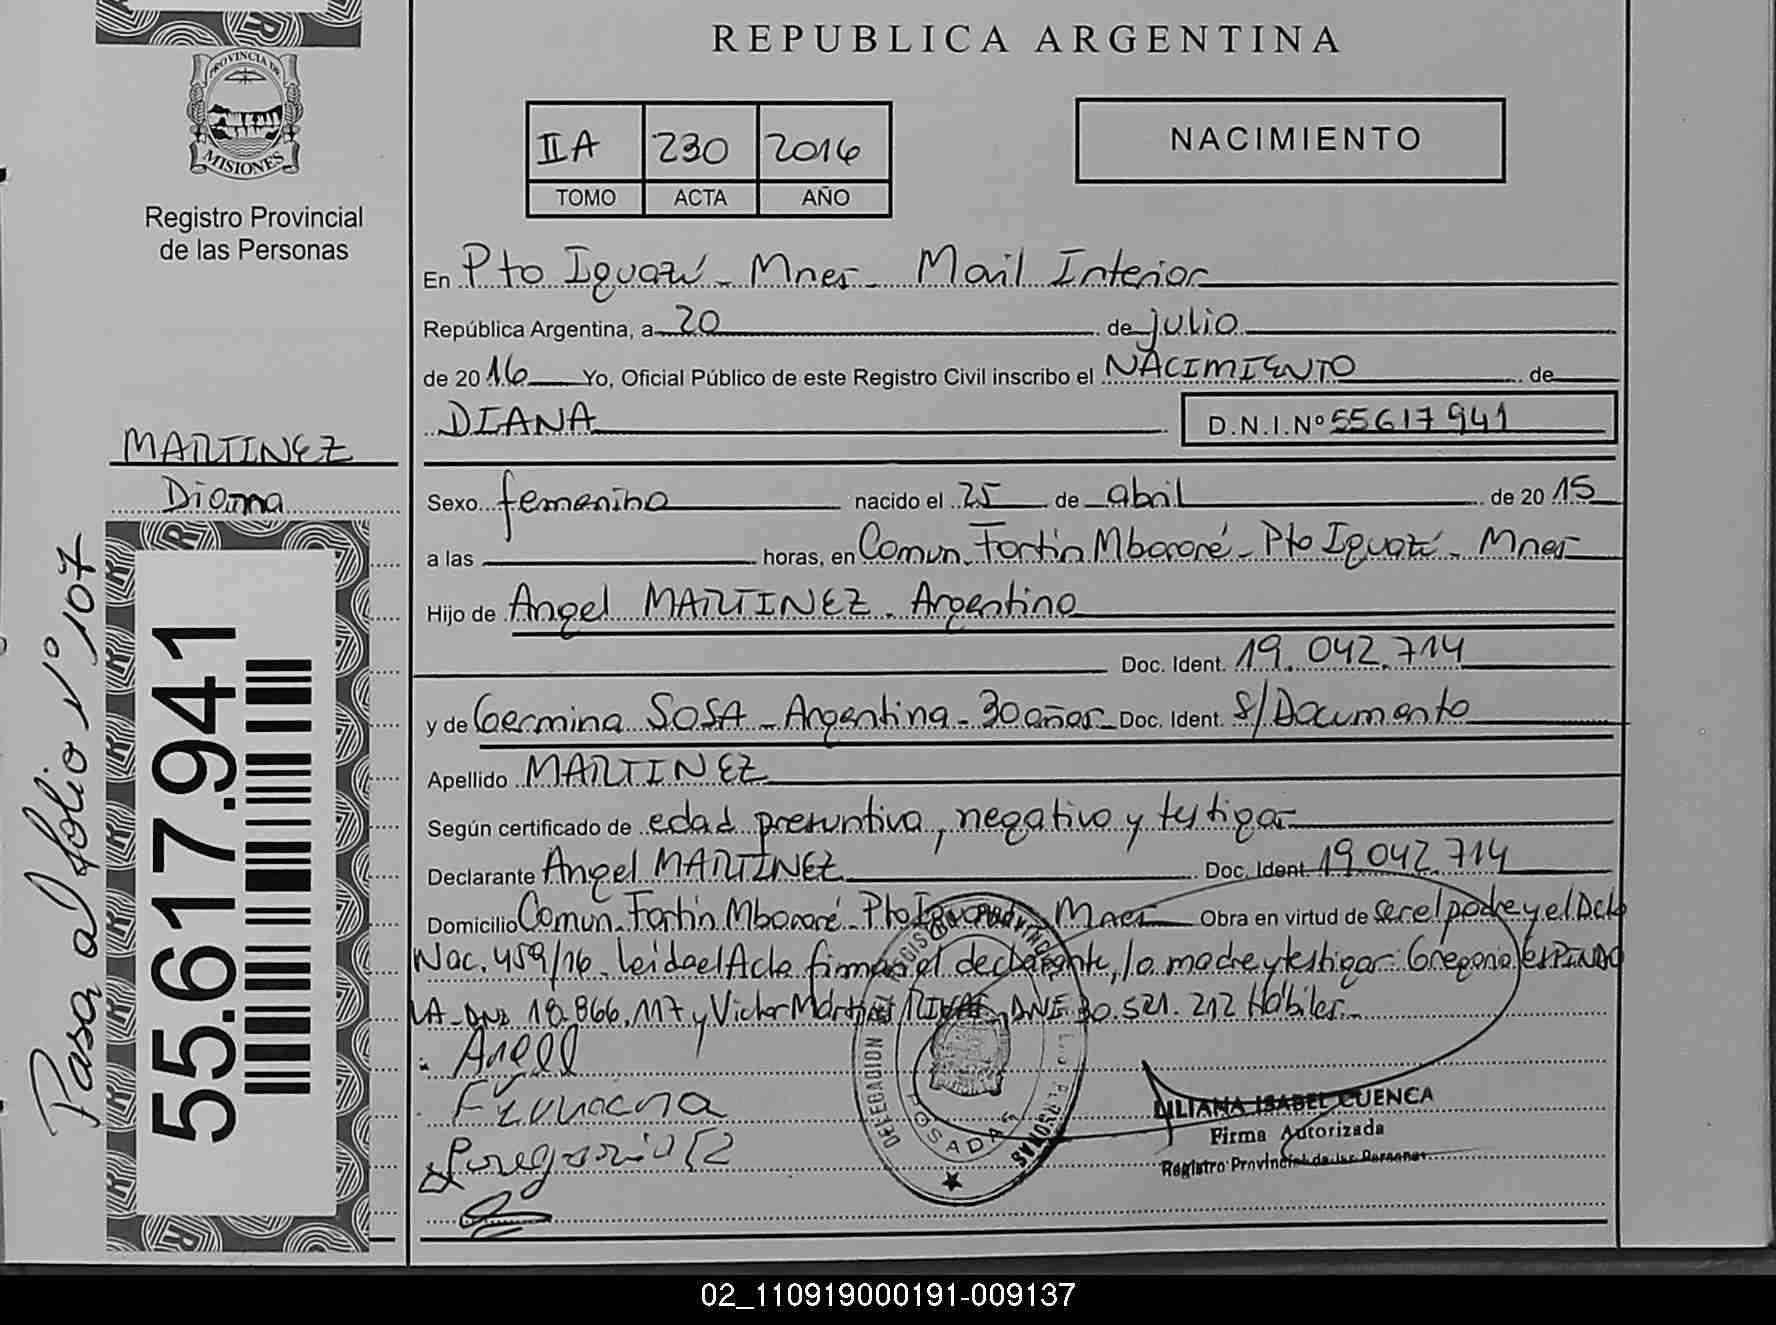 REPUBLICA ARGENTINA
PROVINCIA DE
MISIONES
Registro Provincial
de las Personas
IIA 230 2016
TOMO ACTA AÑO
NACIMIENTO
En Pto Iguazú - Mnes - Movil Interior
República Argentina, a 20 de julio
de 2016 Yo, Oficial Público de este Registro Civil inscribo el NACIMIENTO de
DIANA D.N.I.Nº 55617941
MARTINEZ
Diana
Sexo femenino nacido el 25 de abril de 2015
a las horas, en Comun. Fortín Mbororé - Pto Iguazú - Mnes
Hijo de Angel MARTINEZ - Argentino
Doc. Ident. 19.042.714
y de Germina SOSA - Argentina - 30 años - Doc. Ident. S/Documento
Apellido MARTINEZ
Según certificado de edad presuntiva, negativo y testigos
Declarante Angel MARTINEZ Doc. Ident. 19.042.714
Domicilio Comun. Fortín Mbororé - Pto Iguazú - Mnes Obra en virtud de ser el padre y el Dcto
Nac. 459/16. Leida el Acta firman el declarante, la madre y testigos: Gregoria ESPINDO
LA - DNI 18.866.117 y Victor Martires RIVAS - DNI 30.521.212 Hábiles.
REGISTRO PROVINCIAL DE LAS PERSONAS
DELEGACION
POSADAS
LILIANA ISABEL CUENCA
Firma Autorizada
Registro Provincial de las Personas
55.617.941
Pasa al folio Nº 107
02_110919000191-009137